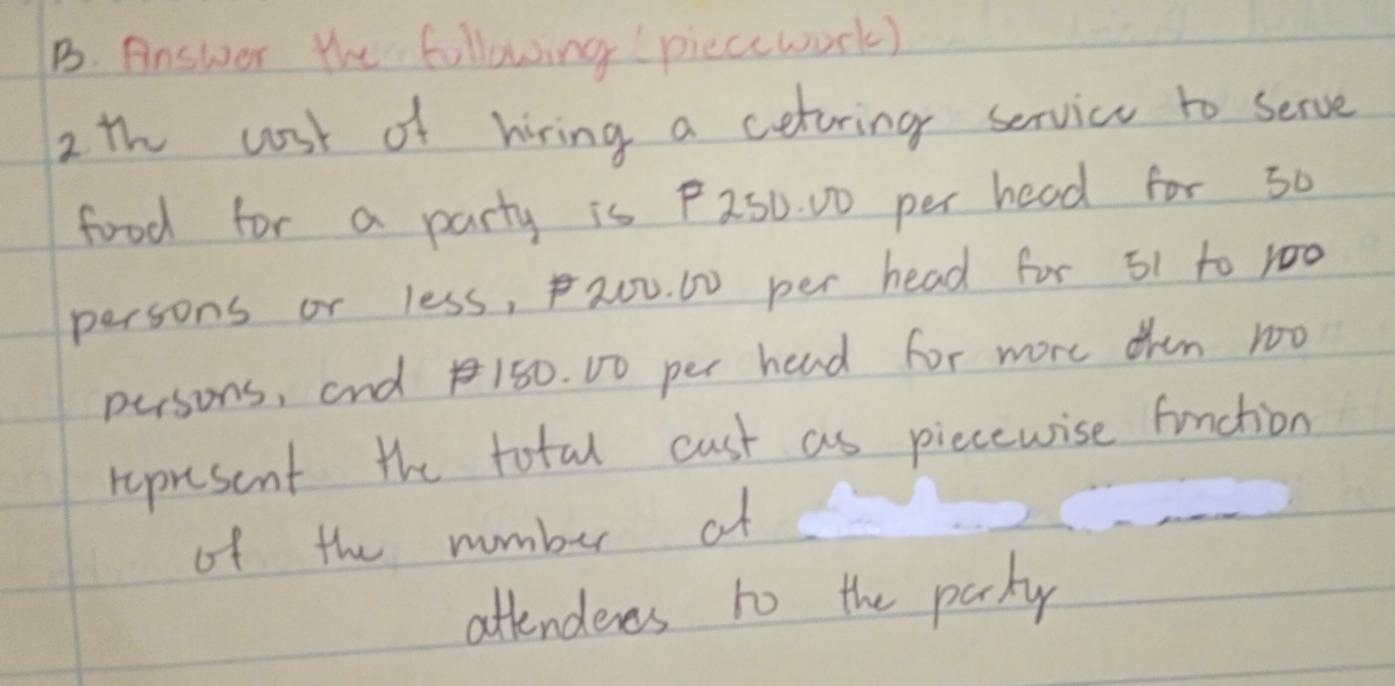 B. Answer the following (piecework)
2. Th cost of hiring a cetering service to serve
food for a party is ₱250.00 per head for 50
persons or less, ₱200.00 per head for 51 to 100
persons, and ₱150.00 per head for more then 100
represent the total cust as piecewise function
of the number of
attenderes to the party